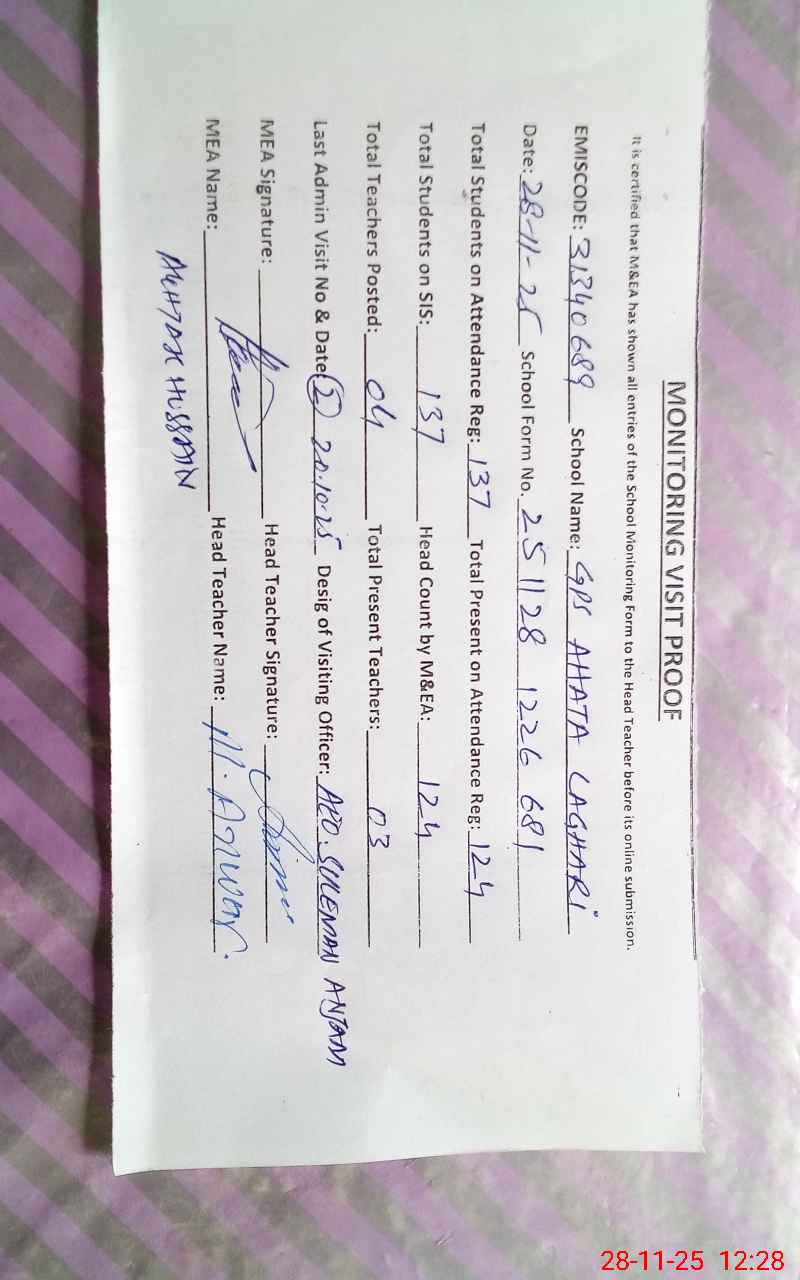 MONITORING VISIT PROOF
It is certified that M&EA has shown all entries of the School Monitoring Form to the Head Teacher before its online submission.
EMISCODE: 31340689 School Name: GPS AHATA LAGHARI
Date: 28-11-25 School Form No. 251128 1226 681
Total Students on Attendance Reg: 137 Total Present on Attendance Reg: 124
Total Students on SIS: 137 Head Count by M&EA: 124
Total Teachers Posted: 04 Total Present Teachers: 03
Last Admin Visit No & Date: (2) 20.10.25 Desig of Visiting Officer: AEO. SULEMAN ANJAM
MEA Signature: Head Teacher Signature:
MEA Name: Head Teacher Name: M. Anwar.
AKHTAR HUSSAIN
28-11-25 12:28